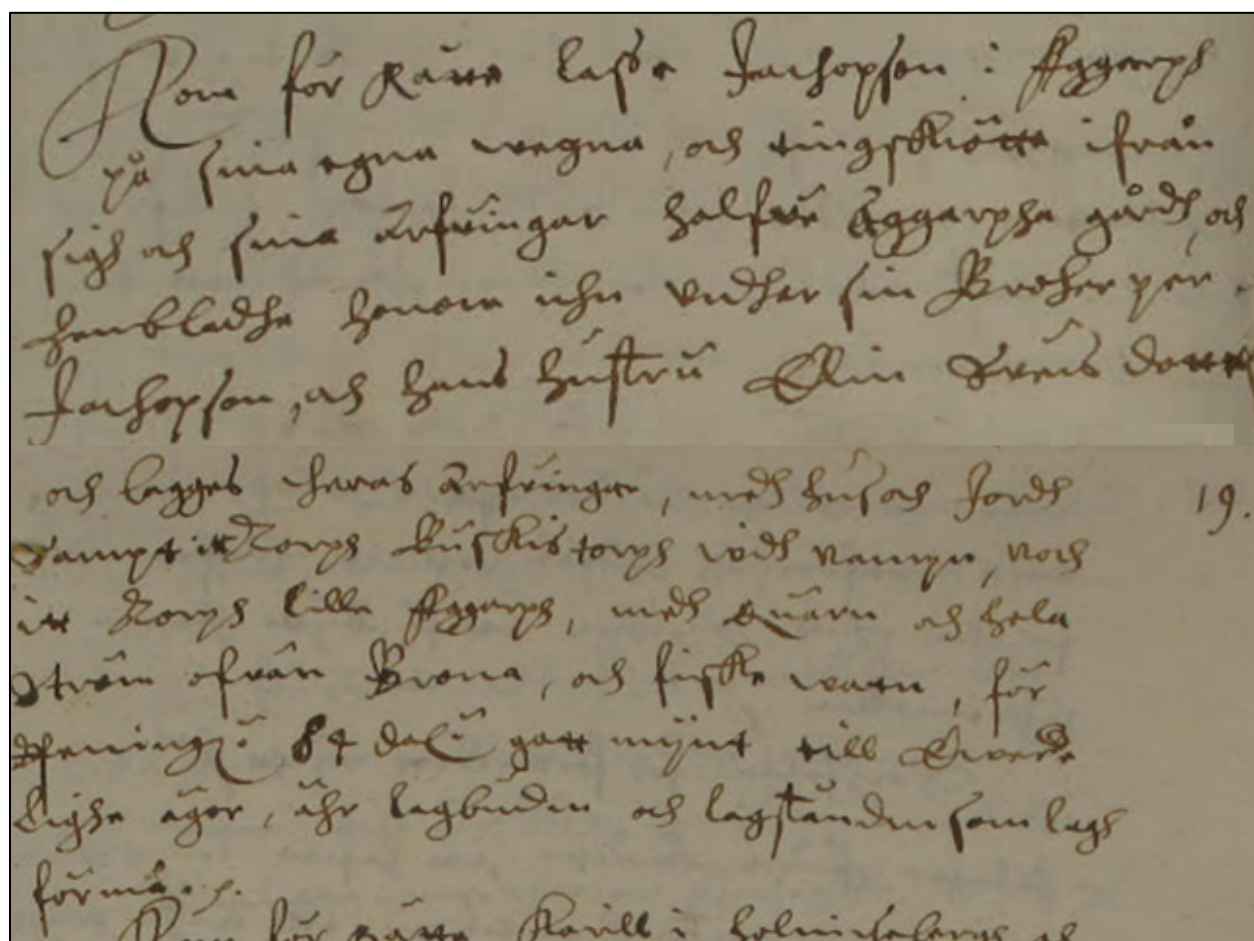 Kom för Rätte Lasse Jachopson i Äggarph
på sina egna wegna, och tingskiötte ifrån
sigh och sina Arfvingar halfve Äggarpha gårdh, och
hembladhe honom ihn vidher sin Broher per
Jachopson, och hans hustru Elin Svens dotter
och begges theras Arfvingar, medh hus och Jordh
sampt itt Torph Ruskis torph widh vampn, och
itt Torph lille Äggarph, medh quarn och hela
Ström ofvan Brona, och fiske watn, för
Peningr 84 dalr gott mÿnt till Ewerde
lighe ägor, ähr lagbudin och lagståndin som lagh
förmå
Kom för rätte i och
19.